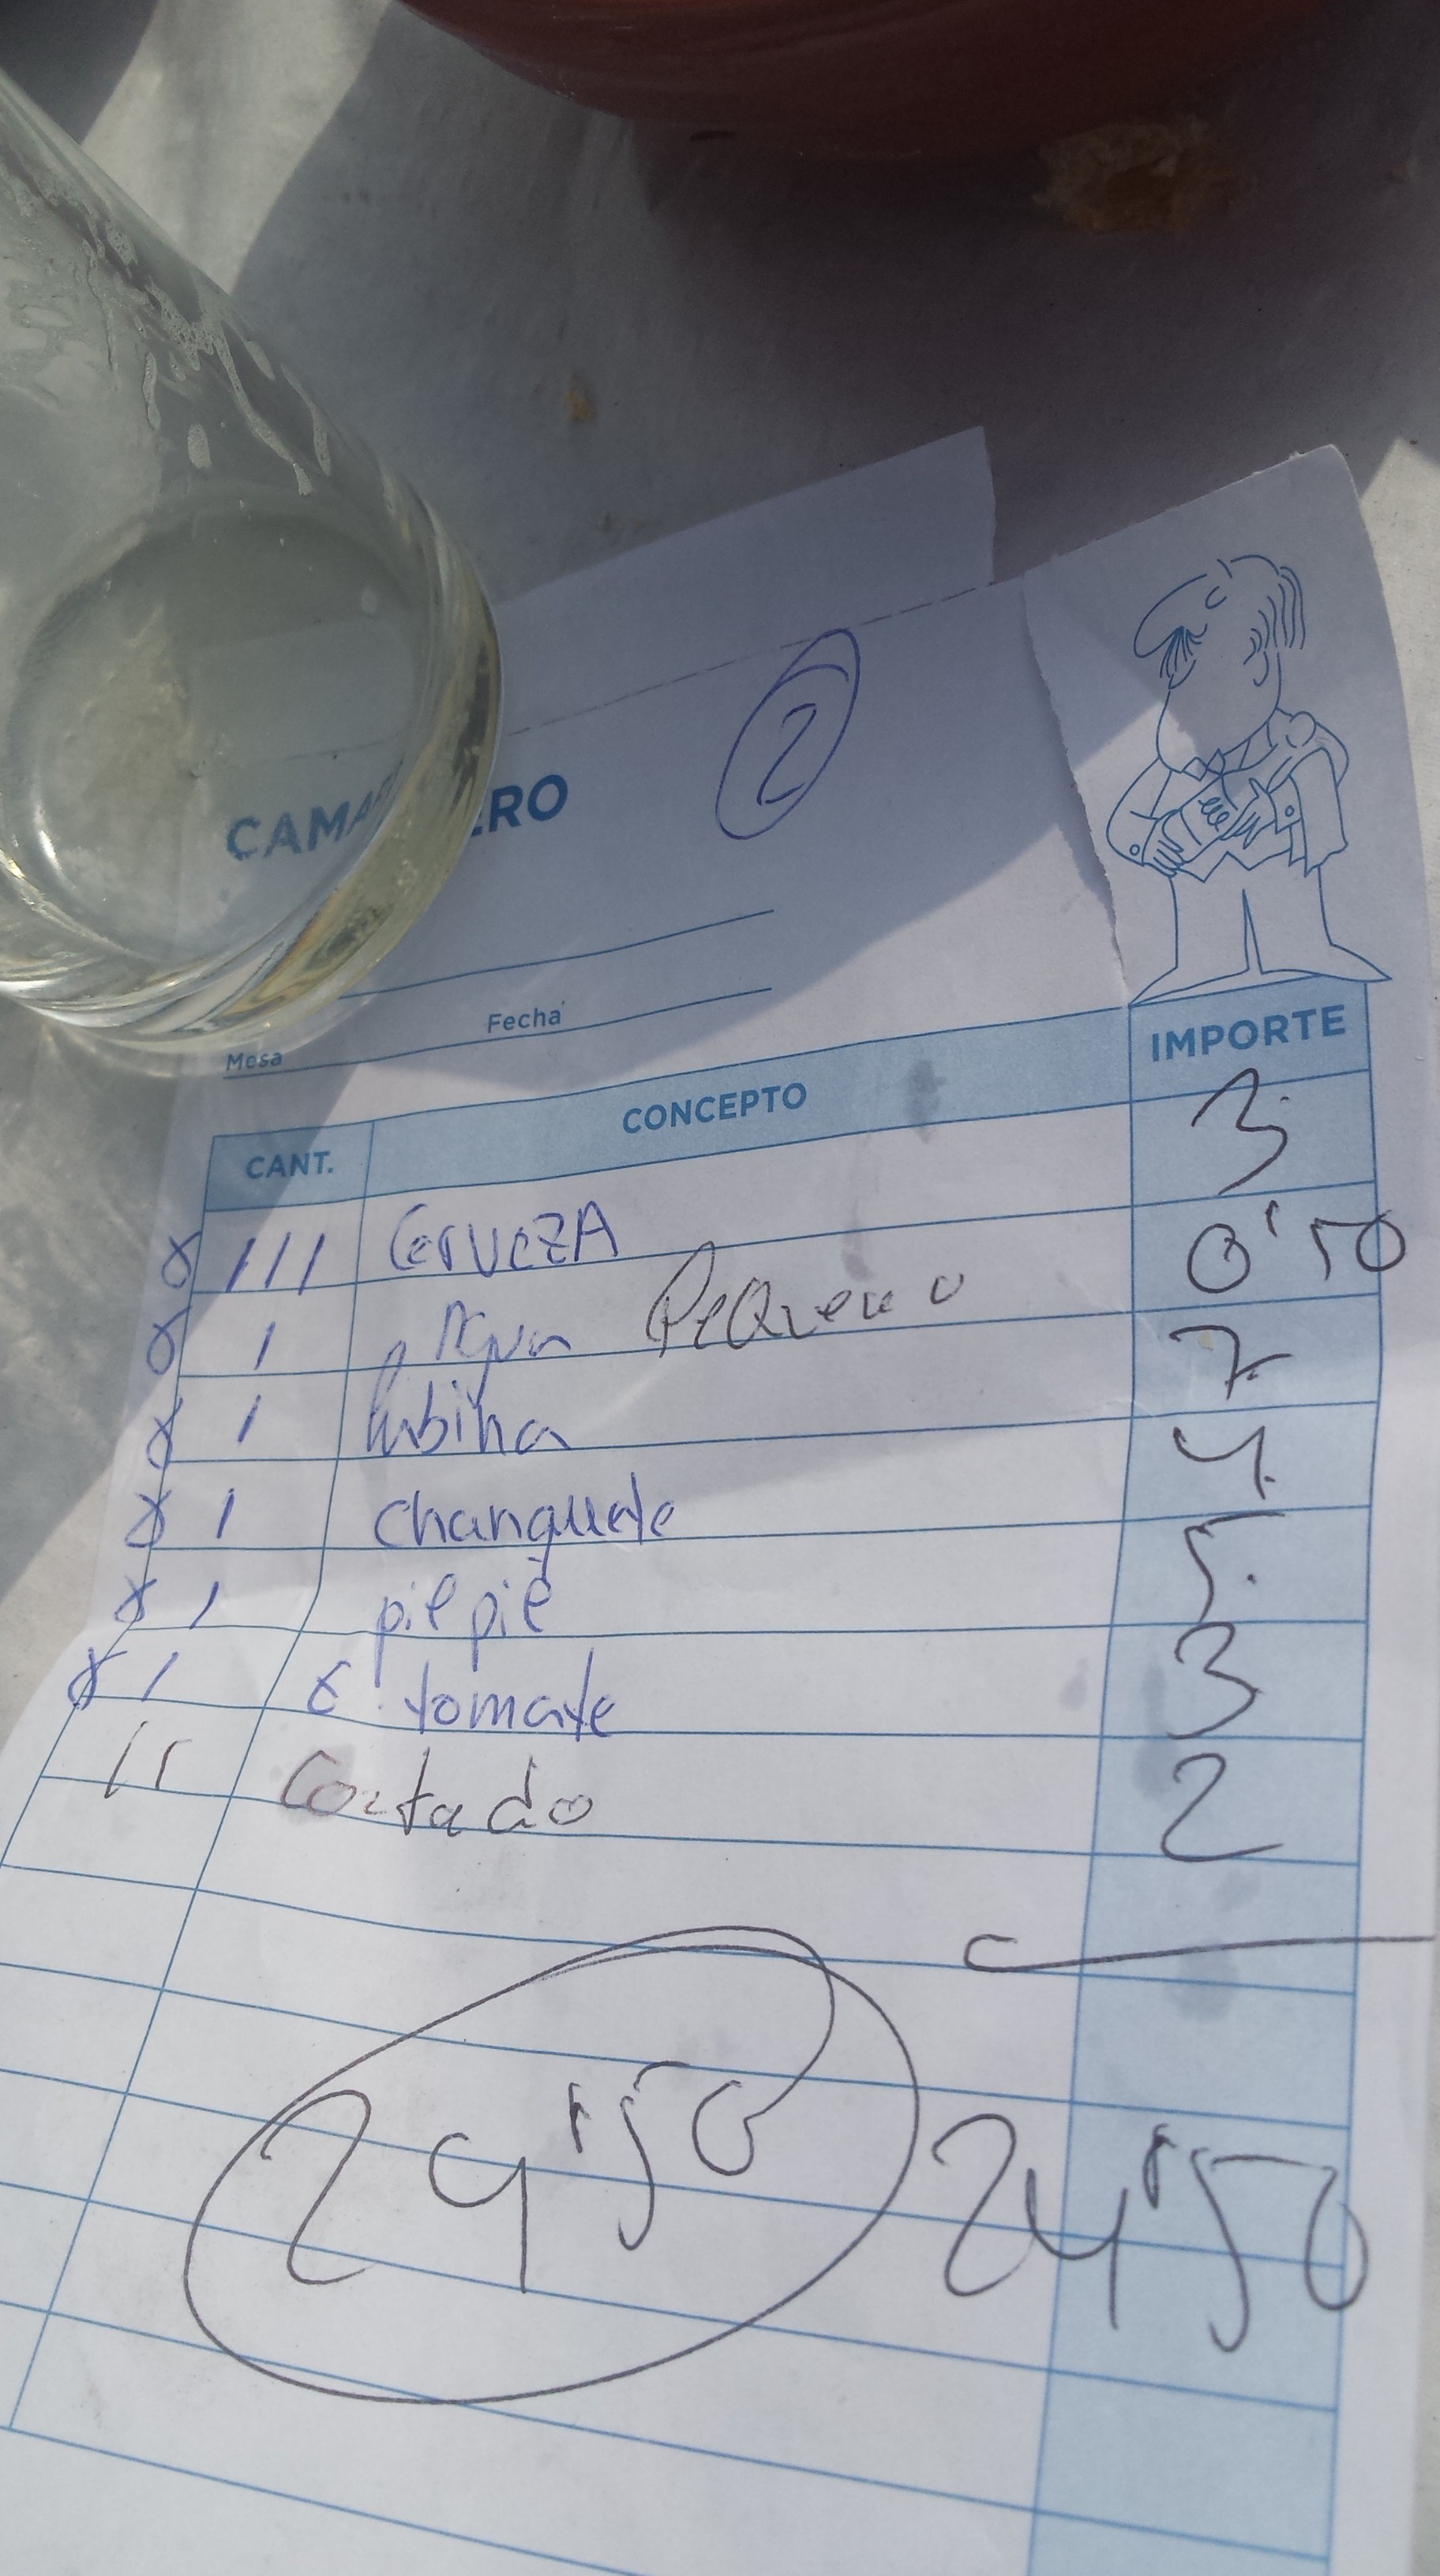 2
CAMA ERO
Mesa Fecha
CANT. CONCEPTO IMPORTE
/// CervezA 3.
/ Agua Pequeno 0'50
/ lubina 7.
/ chanquete 4.
/ pilpil 5.
/ E. tomate 3
// Cortado 2
24'50 24'50